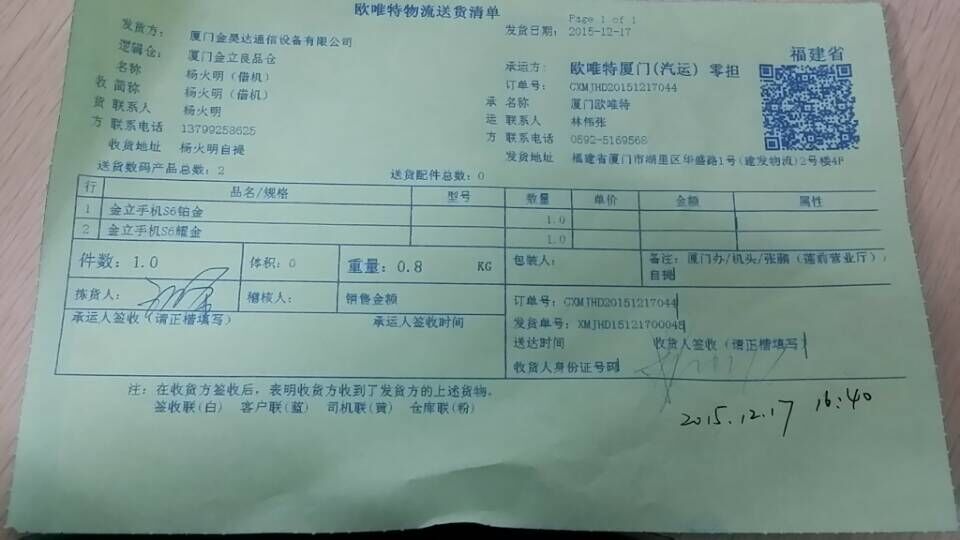 欧唯特物流送货清单
Page 1 of 1
发货方： 厦门金昊达通信设备有限公司
发货日期： 2015-12-17
逻辑仓： 厦门金立良品仓
福建省
名称 杨火明（借机）
承运方： 欧唯特厦门(汽运) 零担
收 简称 杨火明（借机）
订单号： CXMJHD20151217044
货 联系人 杨火明
承 名称 厦门欧唯特
方 联系电话 13799258625
运 联系人 林伟张
收货地址 杨火明自提
方 联系电话 0592-5169568
发货地址 福建省厦门市湖里区华盛路1号(建发物流)2号楼4F
送货数码产品总数：2 送货配件总数：0
行 品名/规格 型号 数量 单价 金额 属性
1 金立手机S6铂金 1.0
2 金立手机S6耀金 1.0
件数：1.0 体积：0 重量：0.8 KG 包装人： 备注：厦门办/机头/张鹏（莲前营业厅），
自提
拣货人： 稽核人： 销售金额 订单号：CXMJHD20151217044
承运人签收（请正楷填写） 承运人签收时间 发货单号：XMJHD1512170004S
送达时间 收货人签收（请正楷填写）
收货人身份证号码
注：在收货方签收后，表明收货方收到了发货方的上述货物。
签收联(白) 客户联(蓝) 司机联(黄) 仓库联(粉)
2015.12.17 16:40